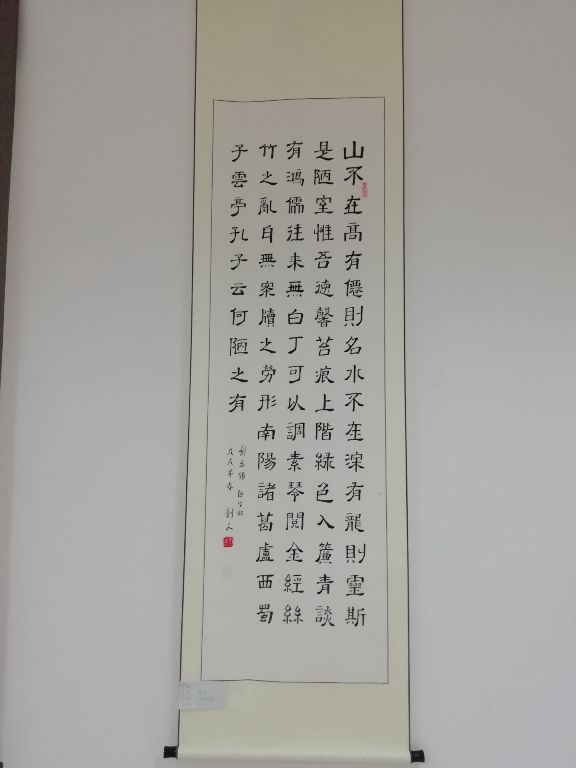 山不在髙有僊則名水不在深有龍則靈斯
是陋室惟吾德馨苔痕上階緑色入簾青談
有鴻儒往来無白丁可以調素琴閲金經絲
竹之亂耳無案牘之勞形南陽諸葛盧西蜀
子雲亭孔子云何陋之有
劉禹錫 陋室銘
年春 劉